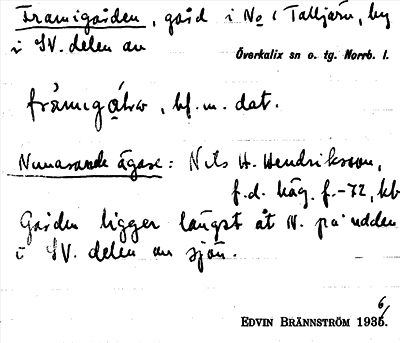 Framigården, gård i No 1 Talljärv, by
i SV. delen av
Överkalix sn o. tg. Norrb. l.
, bf. m. dat.
Nuvarande ägare: Nils H. Hendriksson,
f.d. häg. f. -72, kb
Gården ligger längst åt N. på udden
i SV. delen av sjön.
EDVIN BRÄNNSTRÖM 1936.